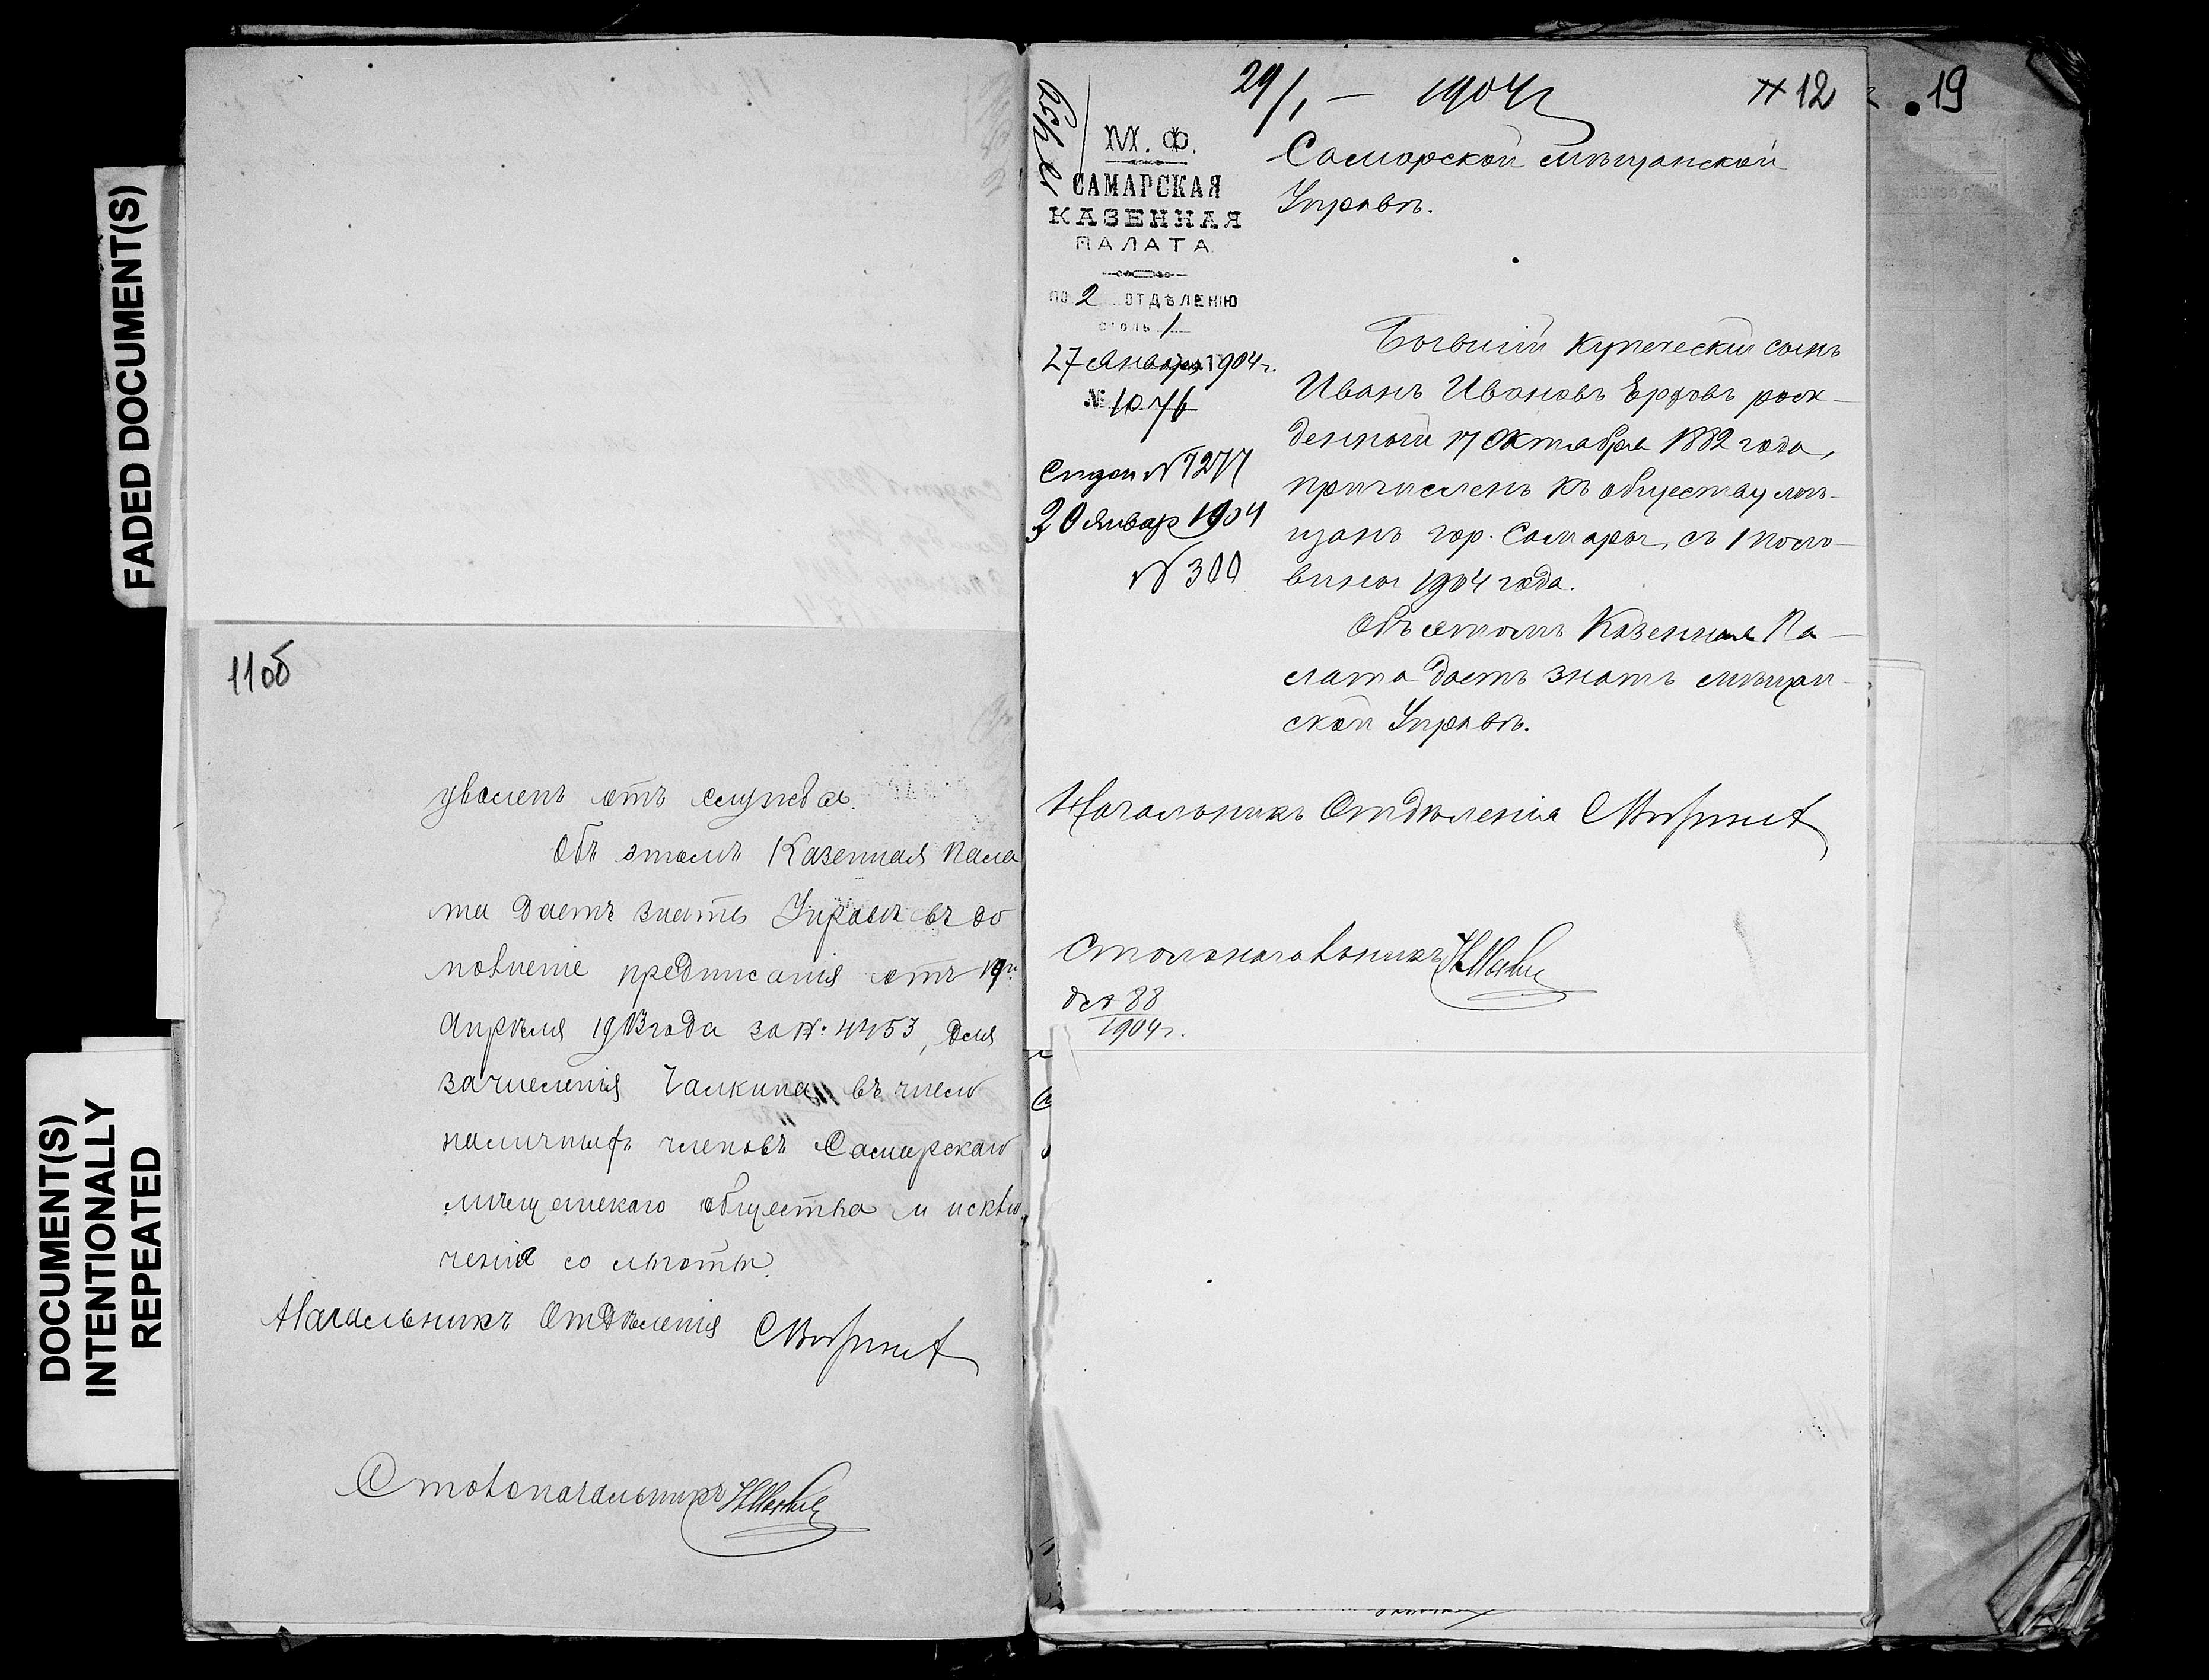 FADED DOCUMENT(S)
DOCUMENT(S)
INTENTIONALLY
REPEATED
11об
уволенъ отъ службы.
Объ этомъ Казенная пала
та даетъ знать Управѣ въ до
полненіе предписанія отъ 19го
Апрѣля 1903 года за №: 4453, для
зачисленія Галкина въ число
наличныхъ членовъ Самарскаго
мѣщанскаго общества и исклю
ченія со льготы.
Начальникъ Отдѣленія
Столоначальникъ
29/1 — 1904 г
12
19
М. Ф.
САМАРСКАЯ
КАЗЕННАЯ
ПАЛАТА
ПО 2 ОТДѢЛЕНІЮ
столъ 1
27 Января 1904 г.
№ 1076
№ 7277
30 Январ 1904
№ 300
Самарской мѣщанской
Управѣ.
Бывшій купеческій сынъ
Иванъ Ивановъ рож-
денный 17 Октября 1882 года,
причисленъ къ обществу мѣ-
щанъ гор. Самары, съ 1 поло-
вины 1904 года.
Объ этомъ Казенная Па-
лата даетъ знать мѣщан-
ской Управѣ.
Начальникъ Отдѣленія
Столоначальникъ
88
1904 г.